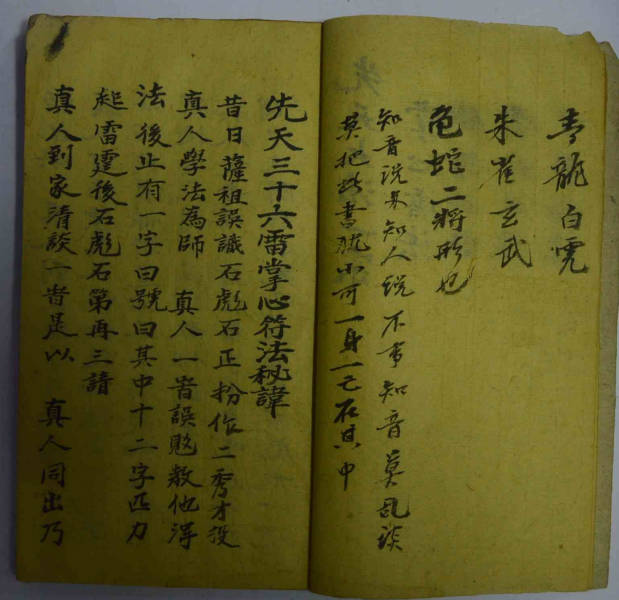 青龍白虎
朱雀玄武
龟蛇二將形也
知音説與知人説 不事知音莫乱談
莫把此書肶小可一身一之在其中
先天三十六雷掌心符法秘諱
昔日薩祖誤識石彪石正扮作二秀才投
真人學法為師 真人一者誤賜教他浔
法後止有一字曰號曰其中十二字匹力
起雷霆後石彪石第再三請
真人到家清談一者是以 真人同出乃